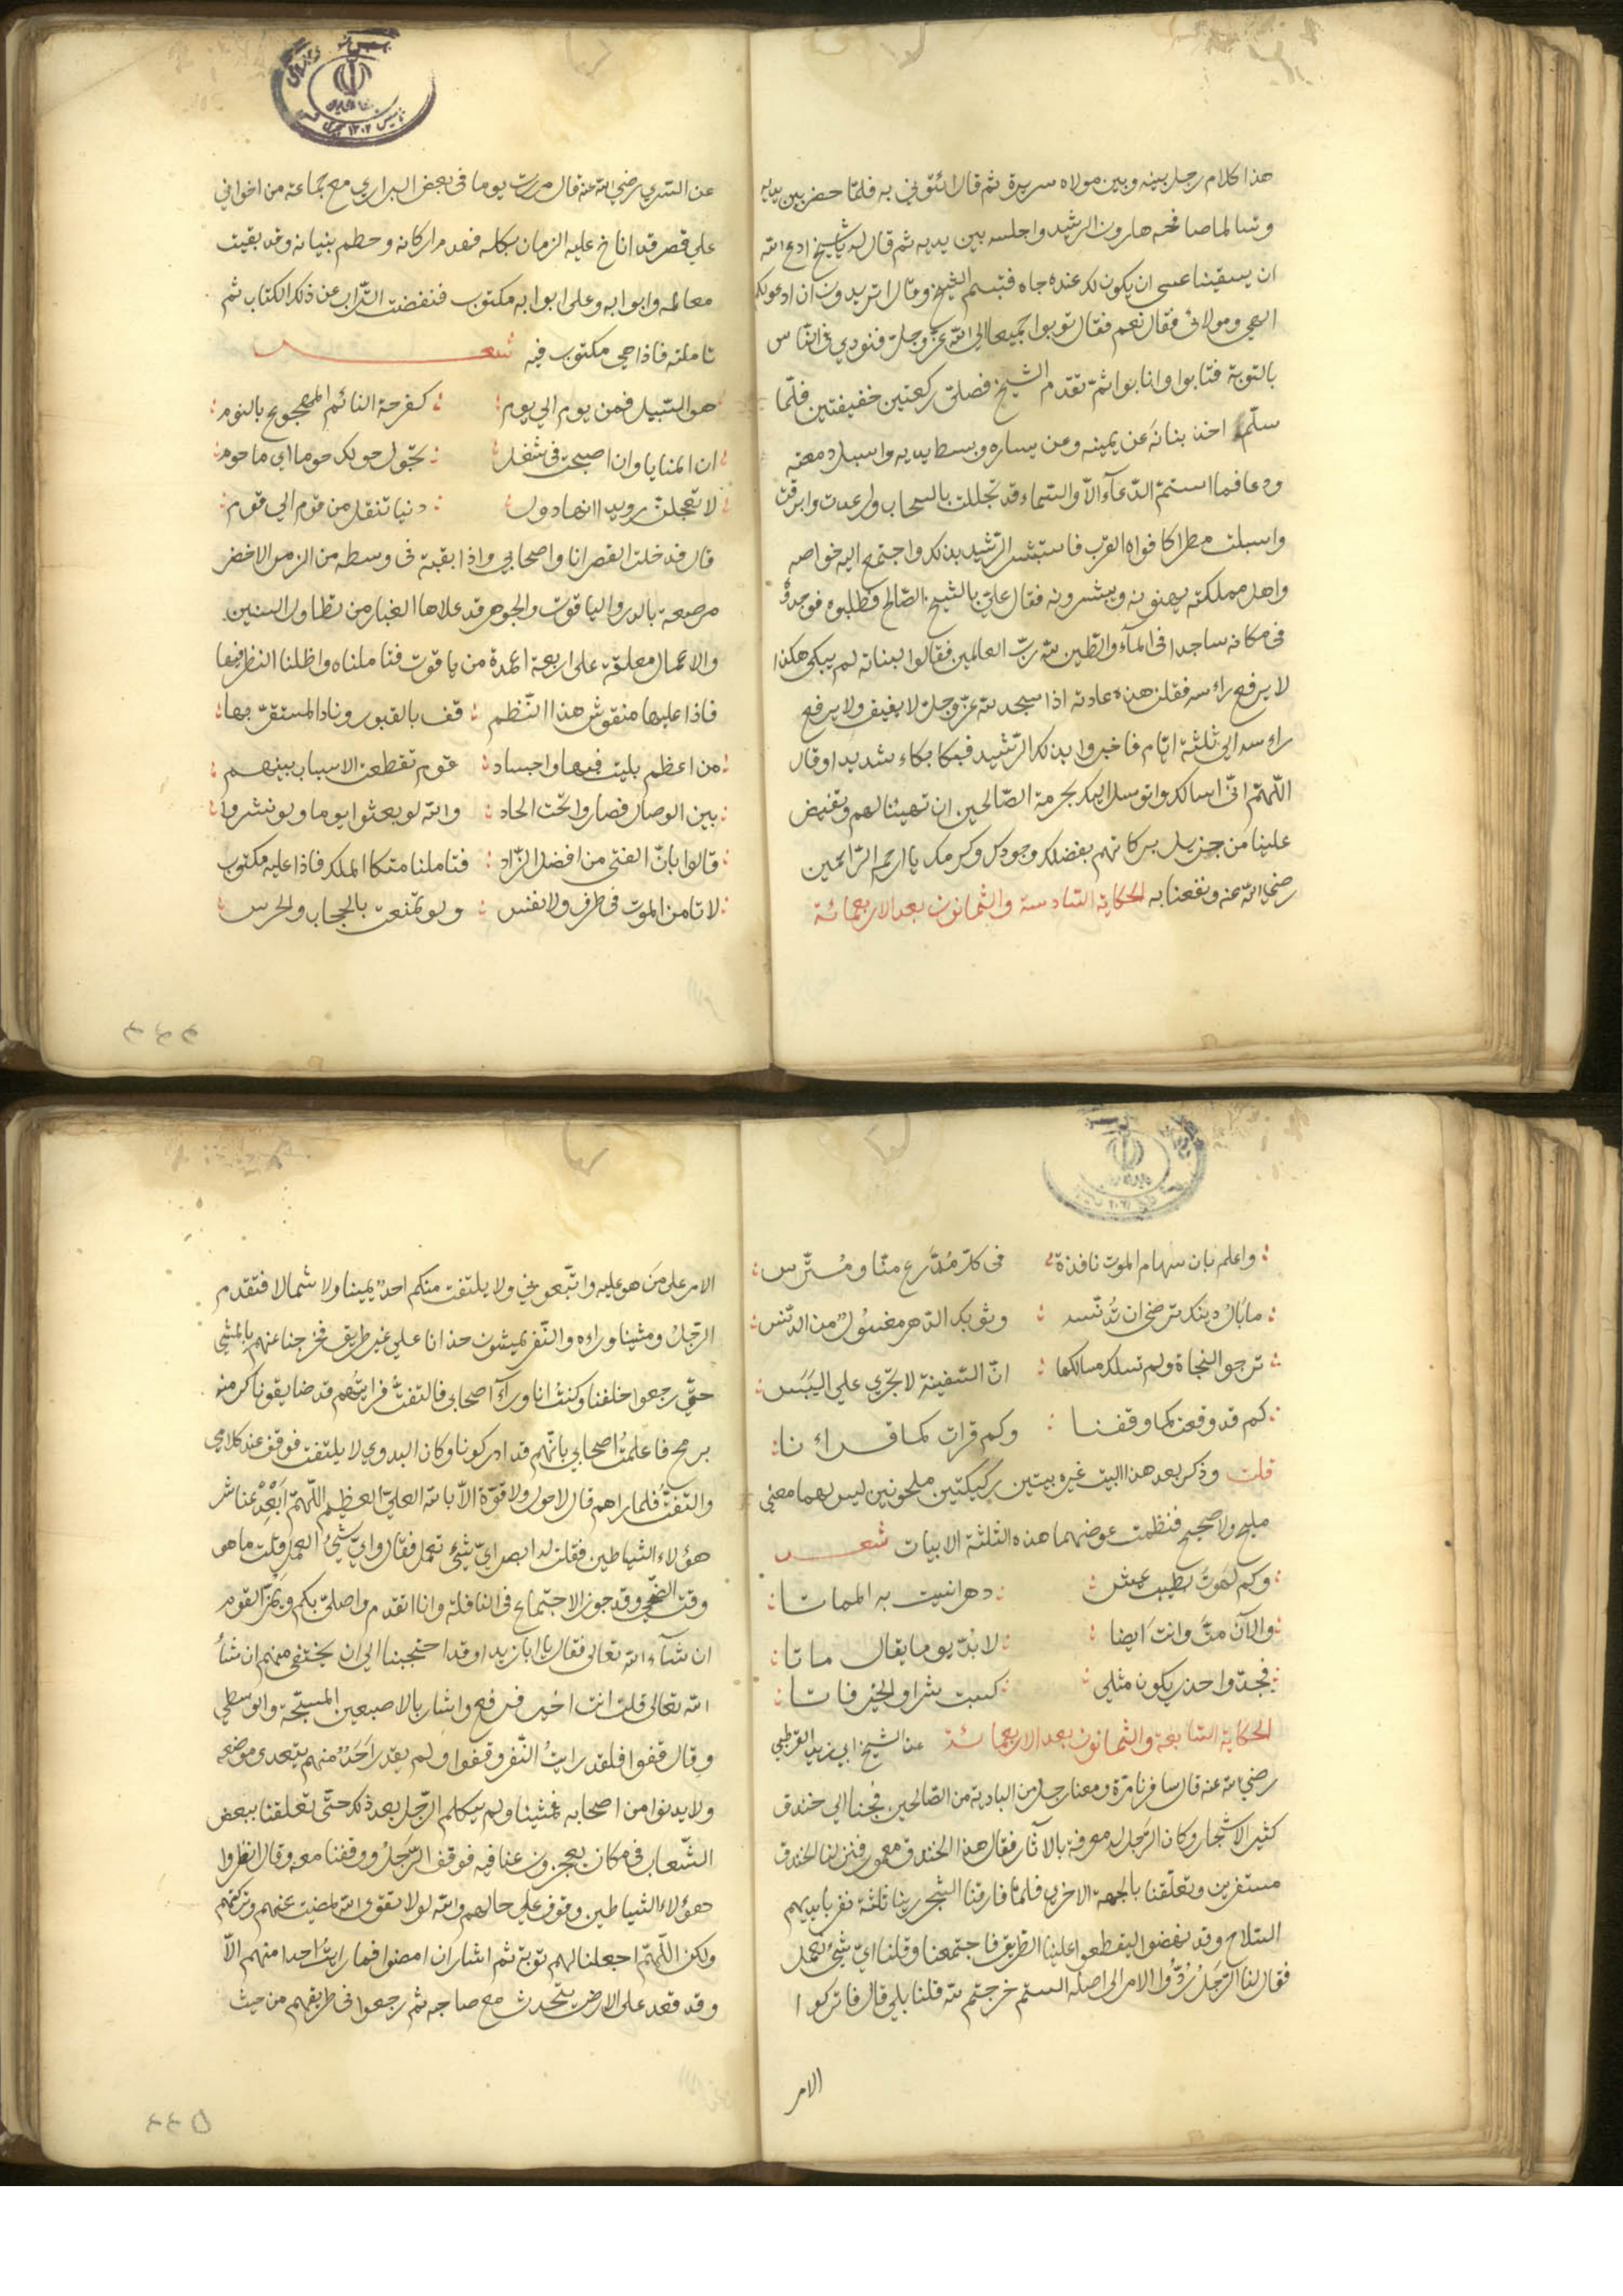 هذا كلام رجل بينه وبين مولاه سريرة ثم قال ائتوني به فلما حضر بين يديه
وتسالما صافحه هارون الرشيد واجلسه بين يديه ثم قال له يا شيخ ادع الله
ان يسقينا عسى ان يكون لك عنده جاه فتبسم الشيخ وقال اتريدون ان ادعو لكم
الهي ومولائي فقال نعم فقال توبوا جميعا الى الله عز وجل فنودي في الناس
بالتوبة فتابوا وانابوا ثم تقدم الشيخ فصلى ركعتين خفيفتين فلما
سلم اخذ بناته عن يمينه وعن يساره وبسط يديه واسبل دمعه
ودعا فما استتم الدعآء الا والسماء قد تجللت بالسحاب ورعدت وابرقت
واسبلت مطرا كافواه القرب فاستبشر الرشيد بذلك واجتمع اليه خواصه
واهل مملكته يهنونه ويبشرونه فقال علي بالشيخ الصالح فطلبوه فوجدوه
في مكانه ساجدا في المآء والطين لله رب العالمين فقالوا لبناته لم يبكى هكذا
لا يرفع راسه فقلن هذه عادته اذا سجد لله عز وجل لا يفيق ولا يرفع
راسه الى ثلثة ايام فاخبروا بذلك الرشيد فبكا بكاء شديدا وقال
اللهم اني اسالك واتوسل اليك بحرمة الصالحين ان تهبنا لهم وتفيض
علينا من جزيل بركاتهم بفضلك وجودك وكرمك يا ارحم الراحمين
رضي الله عنه ونفعنا به الحكاية السادسة والثمانون بعد الاربعمائة
عن السري رضي الله عنه قال مررت يوما في بعض البراري مع جماعة من اخواني
علي قصر قد اناخ عليه الزمان بكلكله فهدم اركانه وحطم بنيانه وقد بقيت
معالمه وابوابه وعلى ابوابه مكتوب فنفضت التراب عن ذلك الكتاب ثم
تاملته فاذا هي مكتوب فيه شعر
هو السبيل فمن يوم الي يوم كفرحة النائم المهجوع بالنوم
ان المنايا وان اصبحت في شغل تحول حولك حوما اي ما حوم
لا تعجلن رويدا انها دول دنيا تنقل من قوم الي قوم
قال فدخلت القصر انا واصحابي واذا بقبة في وسطه من الزمرد الاخضر
مرصعة بالدر والياقوت والجوهر قد علاها الغبار من تطاول السنين
والاعمال معلقة على اربعة اعمدة من ياقوت فتاملناه واظلنا النظر فيها
فاذا عليها منقوش هذا النظم قف بالقبور وناد المستقر بها
من اعظم بليت فيها واجساد قوم تقطعت الاسباب بينهم
بين الوصال فصاروا تحت الحاد والله لو بعثوا يوما ولو نشروا
قالوا بان التقى من افضل الزاد فتاملنا متكا الملك فاذا عليه مكتوب
لا تامن الموت في طرف ولا نفس ولو تمنعت بالحجاب والحرس
٤٤٤
واعلم بان سهام الموت نافذة في كل مدرع منا ومترس
ما بال دينك ترضى ان تدنسه وثوبك الدهر مغسول من الدنس
ترجو النجاة ولم تسلك مسالكها ان السفينة لا تجري علي اليبس
كم قد وقفت كما وقفنا وكم قرات كما قرانا
قلت وذكر بعد هذا البيت غيره بيتين ركيكتين ملحونين ليس لهما معنى
مليح ولا صحيح فنظمت عوضهما هذه الثلثة الابيات شعر
وكم لهوت بطيب عيش دهرا نسيت به المماتا
والآن مت وانت ايضا لا بد يوما يقال ماتا
فجد واحذر يكون مثلي كسبت شرا والخير فاتا
الحكاية السابعة والثمانون بعد الاربعمائة عن الشيخ ابي زيد القرطبي
رضي الله عنه قال سافرنا مرة ومعنا رجل من البادية من الصالحين فجئنا الي خندق
كثير الاشجار وكان الرجل له معرفة بالآثار فقال هذا الخندق معمور فنزلنا الخندق
مستفزين وتعلقنا بالجهة الاخرى فلما فارقنا الشجر رينا ثلثة نفر بايديهم
السلاح وقد نهضوا ليقطعوا علينا الطريق فاجتمعنا وقلنا اي شئ نعمل
فقال لنا الرجل ردوا الامر الى اصله الستم خرجتم لله قلنا بلي قال فاتركوا
الامر
الامر على من هو عليه واتبعوني ولا يلتفت منكم احد يمينا ولا شمالا فتقدم
الرجل ومشينا وراءه والنفر يمشون حذانا علي غير طريق فخرجنا عنهم بالمشي
حتي رجعوا خلفنا وكنت انا ورآء اصحابي فالتفت فرايتهم قد ضايقونا كرمية
برمح فاعلمت اصحابي بانهم قد ادركونا وكان البدوي لا يلتفت فوقف عند كلامي
والتفت فلما راهم قال لا حول ولا قوة الا بالله العلي العظيم اللهم ابعد عنا شر
هؤلاء الشياطين فقلت له ابصر اي شئ تعمل فقال واي شئ العمل قلت ما هو
وقت الضحي وقد جوز الاجتماع في النافلة وانا اتقدم واصلي بكم ويمر القوم
ان شآء الله تعالى فقال يا ابا زيد او قد احتجبنا الي ان يختفي منهم ان شآء
الله تعالى قلت انت اخير فرفع واشار بالاصبعين المسبحة والوسطي
وقال قفوا فلقد رايت النفر وقفوا ولم يقدر احد منهم يتعدى موضعه
ولا يدنوا من اصحابه فمشينا ولم يكلم الرجل بعد ذلك حتى تعلقنا ببعض
الشعاب في مكان يعجزون عنا فيه فوقف الرجل ووقفنا معه وقال انظروا
هؤلاء الشياطين وقوف علي حالهم والله لولا تقوى الله لمضيت عنهم وتركتهم
ولكن اللهم اجعلنا لهم توبة ثم اشار ان امضوا فما رايت احدا منهم الا
وقد قعد على الارض يتحدث مع صاحبه ثم رجعوا في طريقهم من حيث
٤٤٥